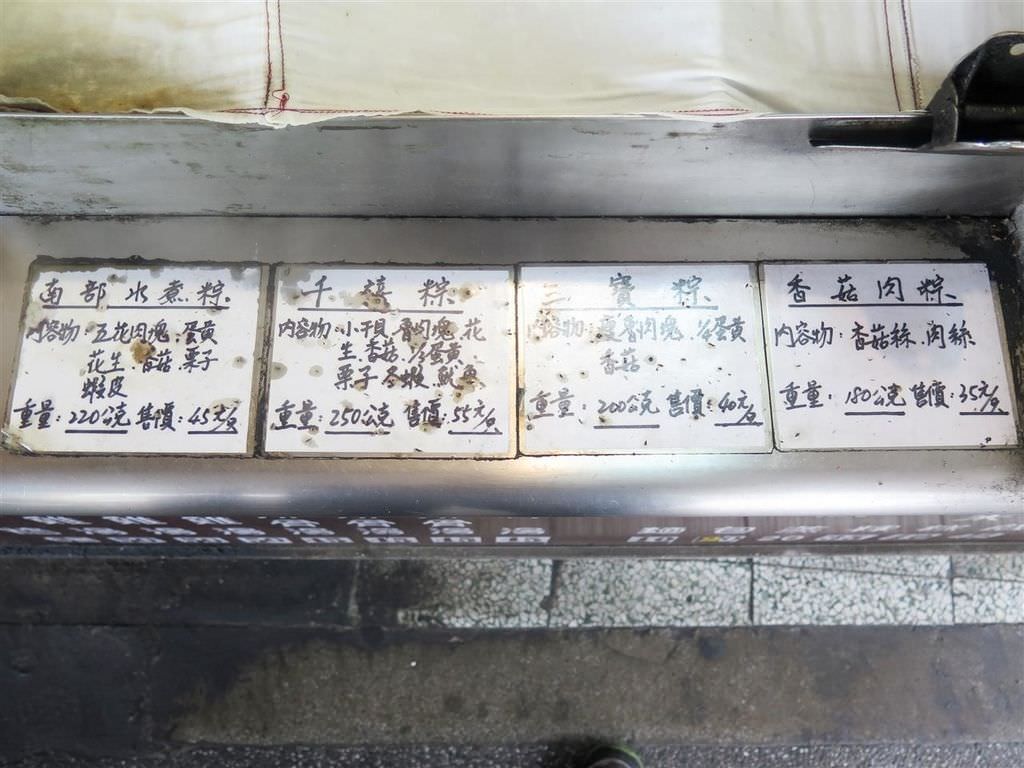 南部水煮粽
內容物：五花肉塊．蛋黃
花生．香菇．栗子
蝦皮
重量：220公克 售價：45元/個
千禧粽
內容物：小干貝．魯肉塊．花
生．香菇．½蛋黃．
栗子．冬蝦．魷魚
重量：250公克 售價：55元/個
三寶粽
內容物：瘦魯肉塊．½蛋黃
香菇
重量：200公克 售價：40元/個
香菇肉粽
內容物：香菇絲．肉絲
重量：180公克 售價：35元/個